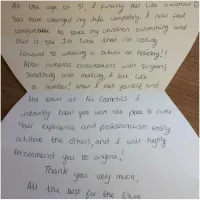 At the age of 51, I finally feel like a woman!
You have changed my life completely. I now feel
comfortable to take my children swimming and
this is the 1st time that I'm looking
forward to wearing a bikini on holiday!!
After numerous consultations with surgeons
something was missing, I felt like
a number! When I met yourself and
the team at Cosmetics I
instantly knew you were the place to come.
Your experience and professionalism easily
outshone the others, and I will highly
recommend you to anyone!
Thank you very much,
All the best for the future